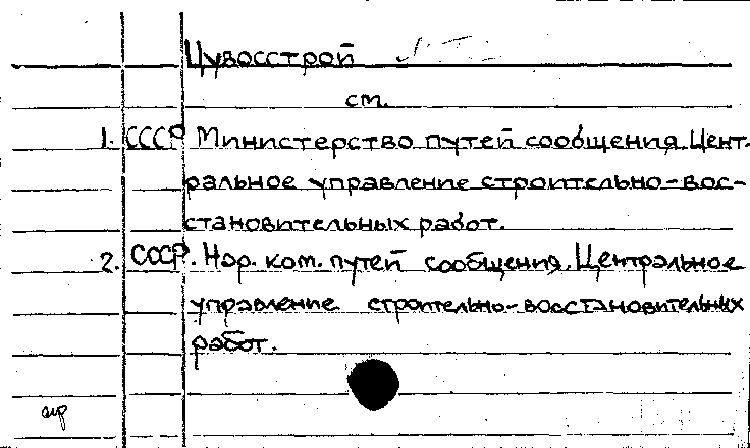 Цувосстрой
см.
1. СССР Министерство путей сообщения. Цент-
ральное управление строительно-вос-
становительных работ.
2. СССР. Нар. ком. путей сообщения. Центральное
управление строительно-восстановительных
работ.